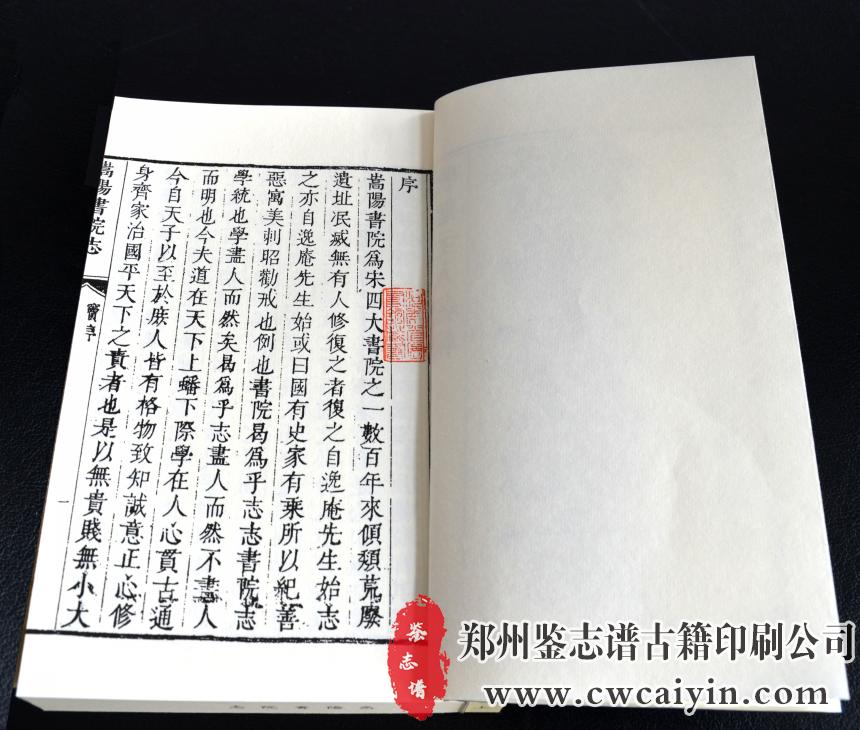 序
嵩陽書院爲宋四大書院之一數百年來傾頽荒廢
遺址泯滅無有人修復之者復之自逸庵先生始志
之亦自逸庵先生始或曰國有史家有乘所以紀善
惡寓美刺昭勸戒也例也書院曷爲乎志志書院志
學統也學盡人而然矣曷爲乎志盡人而然不盡人
而明也今夫道在天下上蟠下際學在人心貫古通
今自天子以至於庶人皆有格物致知誠意正心修
身齊家治國平天下之責者也是以無貴賤無小大
嵩陽書院志
竇序
一
鉴志谱
郑州鉴志谱古籍印刷公司
www.cwcaiyin.com